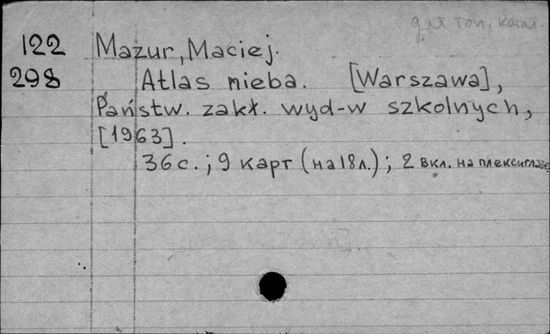 122 Mazur, Maciej.
298 Atlas nieba. [Warszawa],
Państw. zakł. wyd-w szkolnych,
[1963].
36 с.; 9 карт (на 18 л.); 2 вкл. на плексиглазе